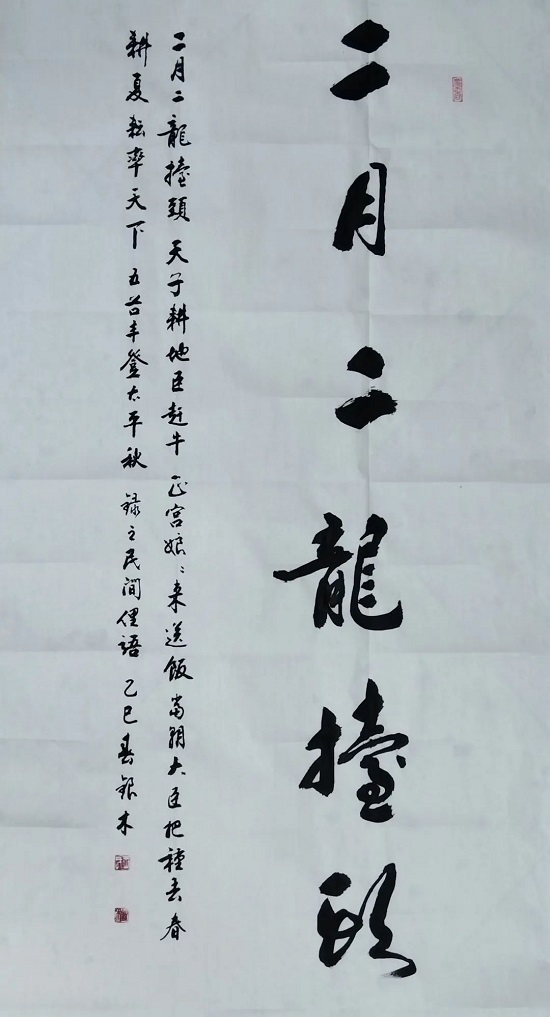 二月二龍擡頭
二月二龍擡頭 天子耕地臣赶牛 正宫娘〻来送飯 當朝大臣把種丢 春
耕夏耘率天下 五谷丰登太平秋 録之民間俚語 乙巳春銀木